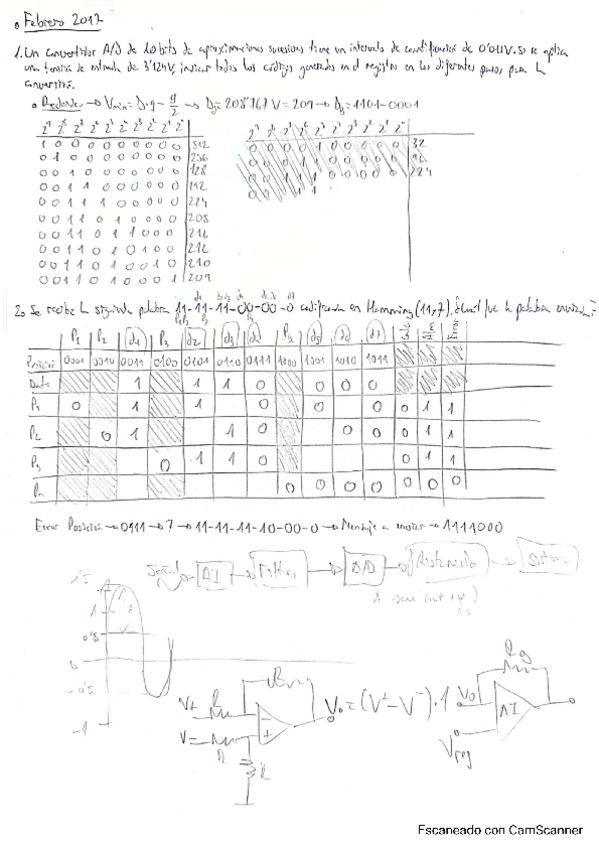 • Febrero 2017
1. Un convertidor A/D de 10 bits de aproximaciones sucesivas tiene un intervalo de cuantificación de 0'011V. Si se aplica
una tensión de entrada de 3'124V, indicar todos los códigos generados en el registro en los diferentes pasos para la
conversión.
• Redondeo → Vmin = D·q - q/2 → D = 208'767 V = 209 → D = 1101-0001
2⁹ 2⁸ 2⁷ 2⁶ 2⁵ 2⁴ 2³ 2² 2¹ 2⁰
1 0 0 0 0 0 0 0 0 0 512
0 1 0 0 0 0 0 0 0 0 256
0 0 1 0 0 0 0 0 0 0 128
0 0 1 1 0 0 0 0 0 0 192
0 0 1 1 1 0 0 0 0 0 224
0 0 1 1 0 1 0 0 0 0 208
0 0 1 1 0 1 1 0 0 0 216
0 0 1 1 0 1 0 1 0 0 212
0 0 1 1 0 1 0 0 1 0 210
0 0 1 1 0 1 0 0 0 1 209
2⁹ 2⁸ 2⁷ 2⁶ 2⁵ 2⁴ 2³ 2² 2¹ 2⁰
0 0 0 0 1 0 0 0 0 0 32
224
2. Se recibe la siguiente palabra 11-11-11-00-00-0 codificada en Hamming (11,7), ¿cuál fue la palabra enviada?
P₁ P₂ d₁ P₃ d₂ d₃ d₄ P₄ d₅ d₆ d₇ Error
Posición 0001 0010 0011 0100 0101 0110 0111 1000 1001 1010 1011
Dato 1 1 1 0 0 0 0
P₁ 0 1 1 0 0 0 0 1 1
P₂ 0 1 1 0 0 0 0 1 1
P₃ 0 1 1 0 0 1 1
P₄ 0 0 0 0 0 0 0
Error Posición → 0111 → 7 → 11-11-11-10-00-0 → Mensaje a enviar → 1111000
Señal AI → Filtro → A/D →
A sen (wt + φ)
1'5
1
0'5
0
-0'5
-1
V+ R R
V- R R
V₀ = (V⁺ - V⁻)·1
V₀ Rg AI
Vreg
Escaneado con CamScanner